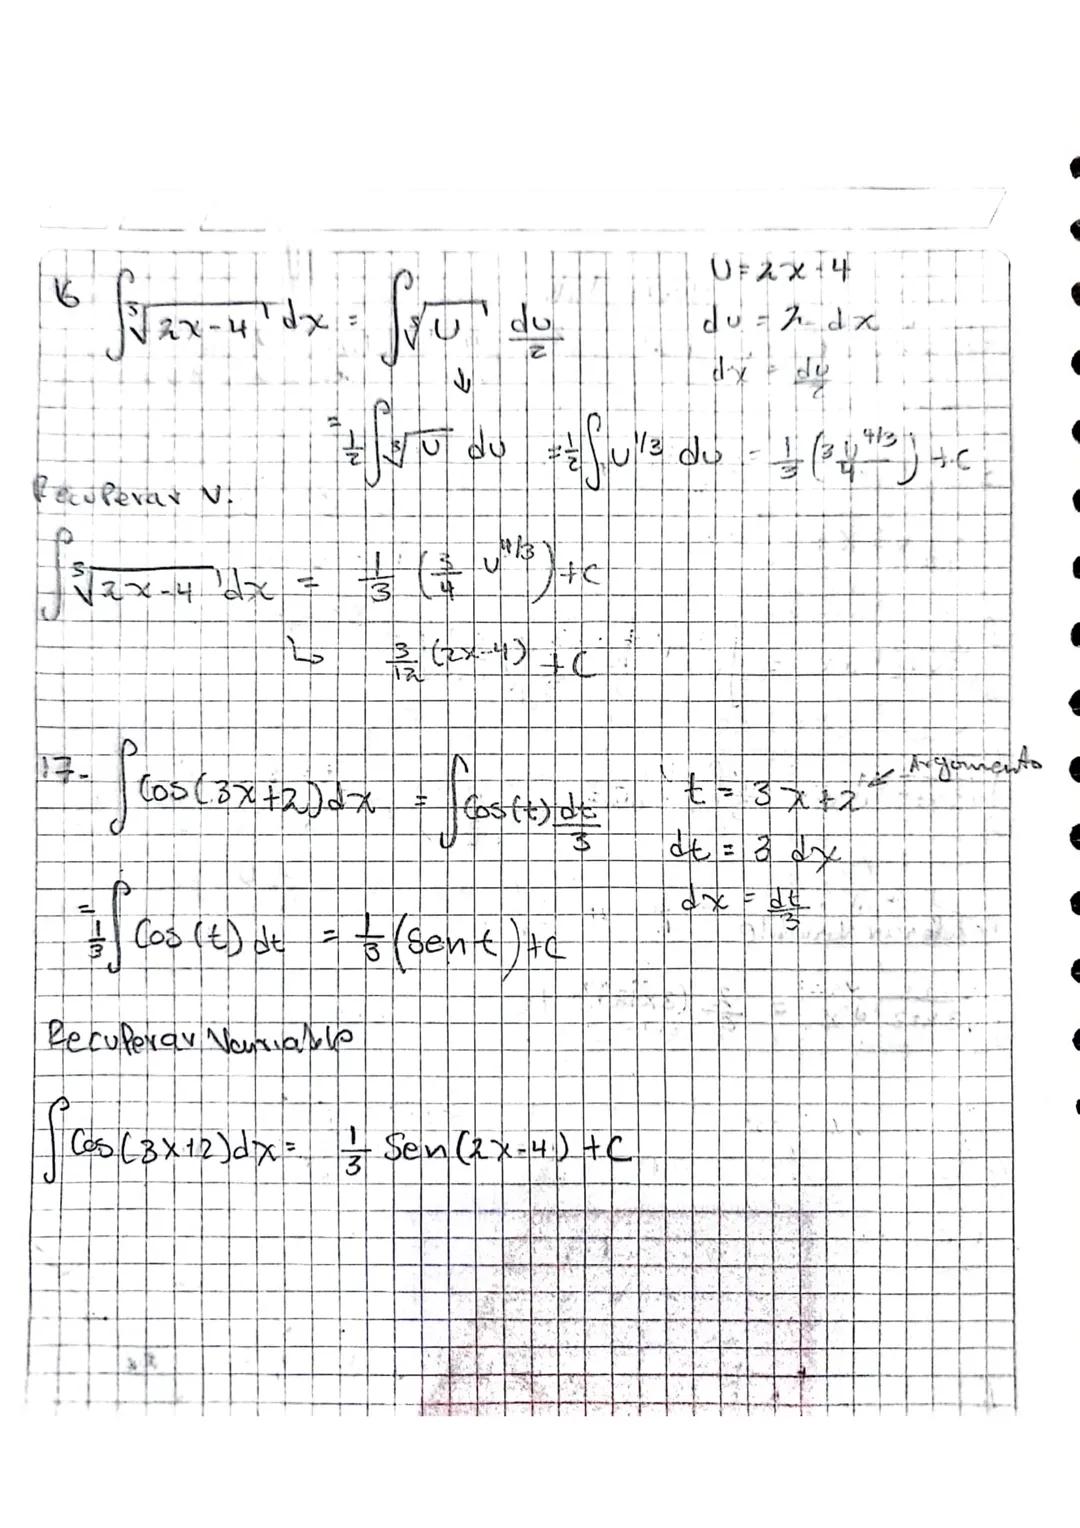 16 ∫∛(2x-4) dx = ∫∛U du/2
U = 2x-4
du = 2 dx
dx = du/2
= 1/2 ∫∛U du = 1/2 ∫ U^1/3 du = 1/3 (3U^4/3 / 4) + C
Recuperar V.
∫∛(2x-4) dx = 1/3 (3/4 U^4/3) + C
↳ 3/12 (2x-4) + C
17- ∫Cos(3x+2)dx = ∫Cos(t) dt/3
t = 3x+2 ← Argomento
dt = 3 dx
dx = dt/3
= 1/3 ∫ Cos(t) dt = 1/3 (Sen t) + C
Recuperar Variable
∫Cos(3x+2)dx = 1/3 Sen(2x-4) + C